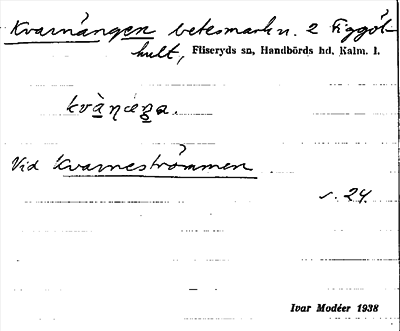 Kvarnängen betesmark n. 2 Figgöl-
hult, Fliseryds sn, Handbörds hd, Kalm. l.
Vid Kvarneströmmen
s. 24.
Ivar Modéer 1938